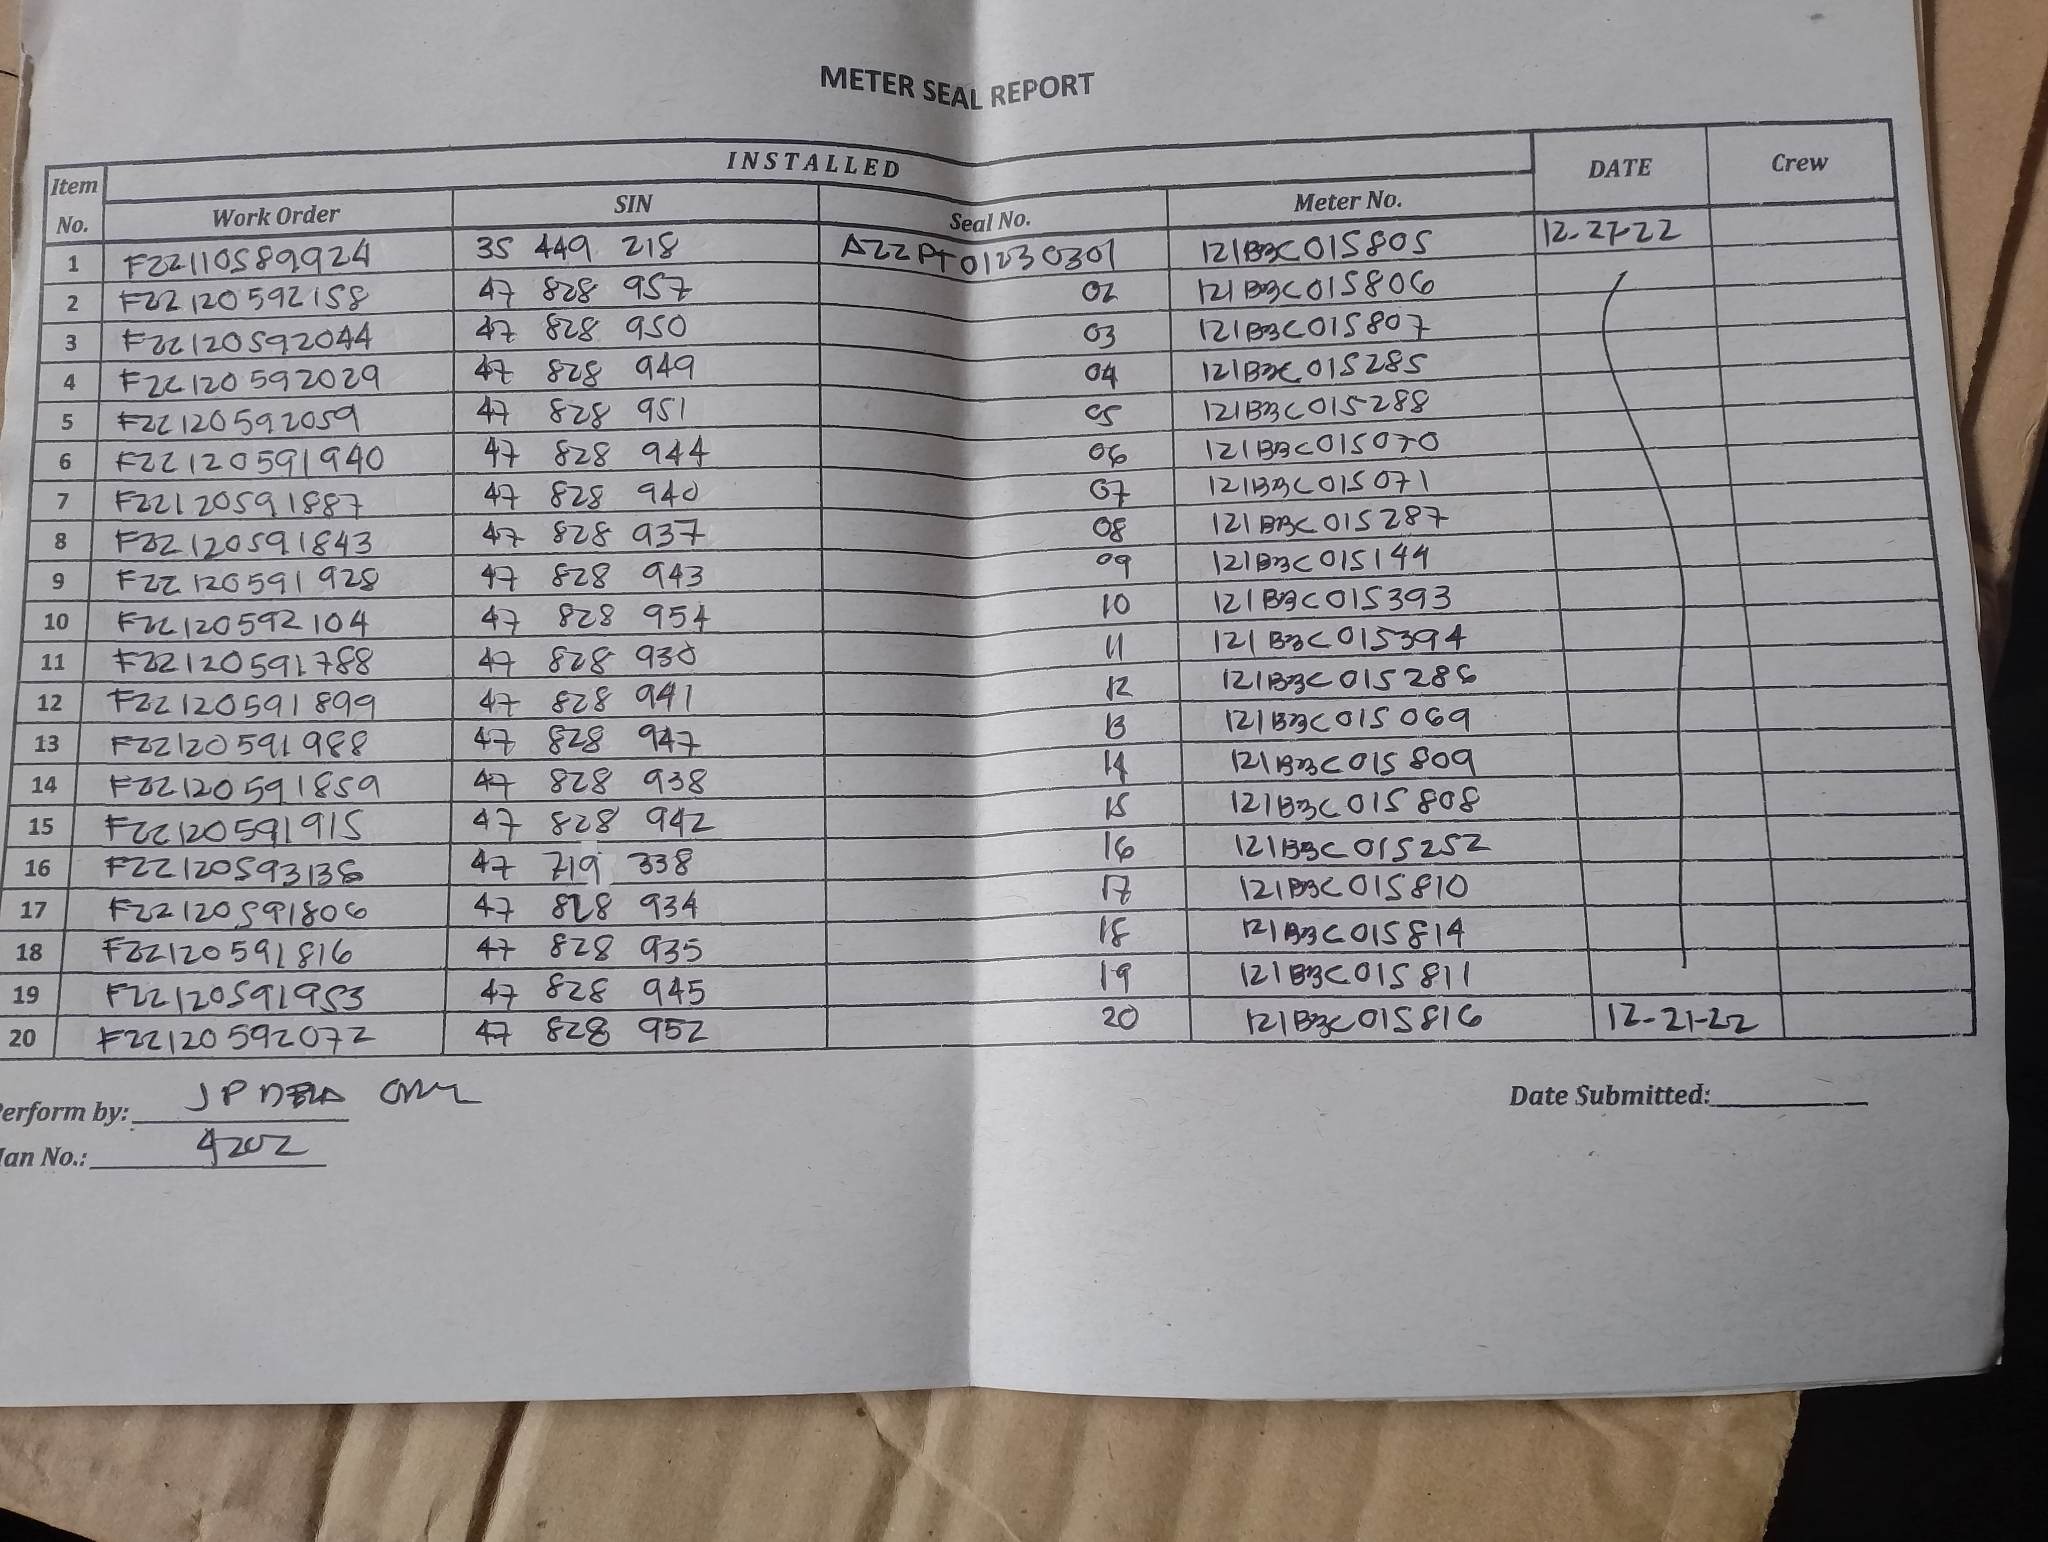 METER SEAL REPORT
INSTALLED DATE Crew
Item No. Work Order SIN Seal No. Meter No.
1 F22110589924 35 449 218 A22PT01230301 121B3C015805 12-27-22
2 F22120592158 47 828 957 02 121B3C015806
3 F22120592044 47 828 950 03 121B3C015807
4 F22120592029 47 828 949 04 121B3C015285
5 F22120592059 47 828 951 05 121B3C015288
6 F22120591940 47 828 944 06 121B3C015070
7 F22120591887 47 828 940 07 121B3C015071
8 F22120591843 47 828 937 08 121B3C015287
9 F22120591928 47 828 943 09 121B3C015144
10 F22120592104 47 828 954 10 121B3C015393
11 F22120591788 47 828 930 11 121B3C015394
12 F22120591899 47 828 941 12 121B3C015286
13 F22120591988 47 828 947 13 121B3C015069
14 F22120591859 47 828 938 14 121B3C015809
15 F22120591915 47 828 942 15 121B3C015808
16 F22120593136 47 719 338 16 121B3C015252
17 F22120591806 47 828 934 17 121B3C015810
18 F22120591816 47 828 935 18 121B3C015814
19 F22120591953 47 828 945 19 121B3C015811
20 F22120592072 47 828 952 20 121B3C015816 12-21-22
erform by: JP Date Submitted:
an No.: 4202